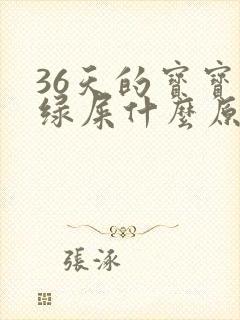 36天的寶寶
绿屎什麼原
張泳